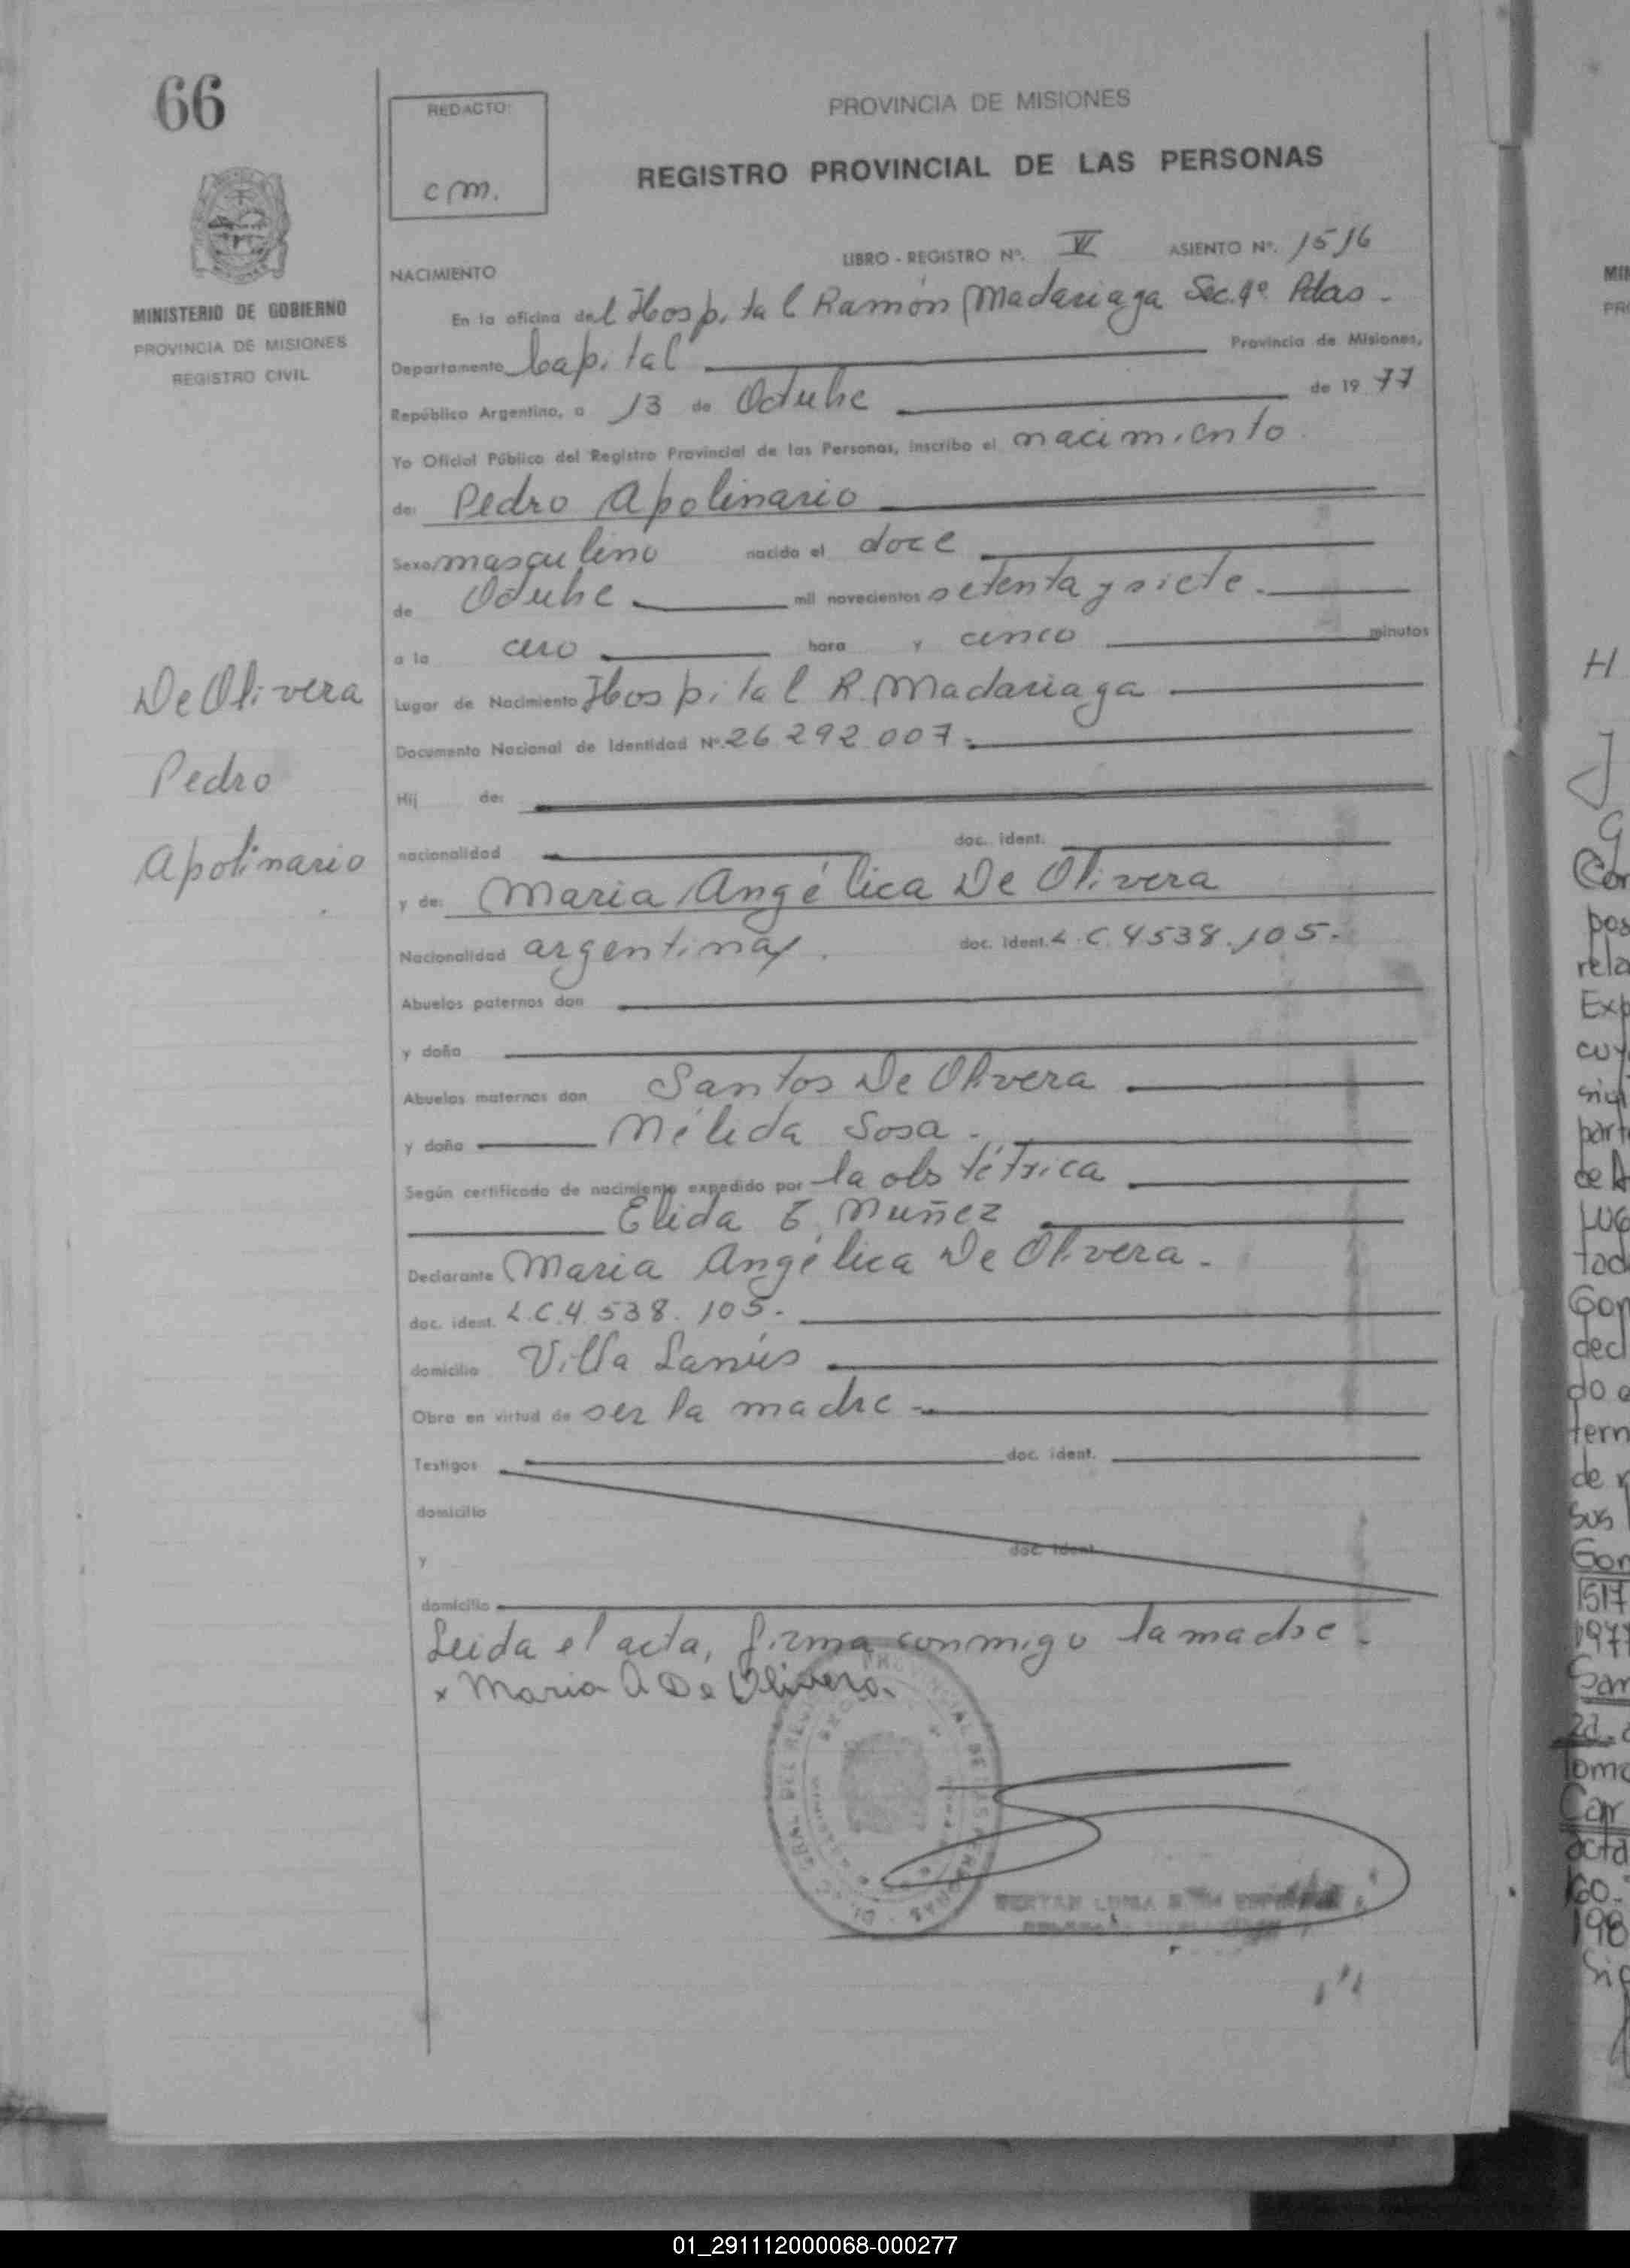 66
REDACTO:
c m.
PROVINCIA DE MISIONES
REGISTRO PROVINCIAL DE LAS PERSONAS
MINISTERIO DE GOBIERNO
PROVINCIA DE MISIONES
REGISTRO CIVIL
LIBRO - REGISTRO Nº. VI ASIENTO Nº. 1516
NACIMIENTO
En la oficina del Hospital Ramón Madariaga Sec. 4º Pdas.
Departamento Capital Provincia de Misiones,
República Argentina, a 13 de Octubre de 19 77
Yo Oficial Público del Registro Provincial de las Personas, inscribo el nacimiento
de: Pedro Apolinario
Sexo masculino nacido el doce
de Octubre mil novecientos setenta y siete.
a la cero hora y cinco minutos
De Olivera
Pedro
Apolinario
Lugar de Nacimiento Hospital R. Madariaga
Documento Nacional de Identidad Nº. 26 292 007.
Hij de:
nacionalidad doc. ident.
y de: Maria Angélica De Olivera
Nacionalidad argentina doc. ident. L.C. 4538.105.
Abuelos paternos don
y doña
Abuelos maternos don Santos De Olivera
y doña Nélida Sosa.
Según certificado de nacimiento expedido por la obstétrica
Elida E. Muñez
Declarante Maria Angélica De Olivera.
doc. ident. L.C. 4.538.105.
domicilio Villa Lanús
Obra en virtud de ser la madre
Testigos doc. ident.
domicilio
y doc. ident.
domicilio
Leida el acta, firma conmigo la madre.
x Maria A De Olivera.
01_291112000068-000277